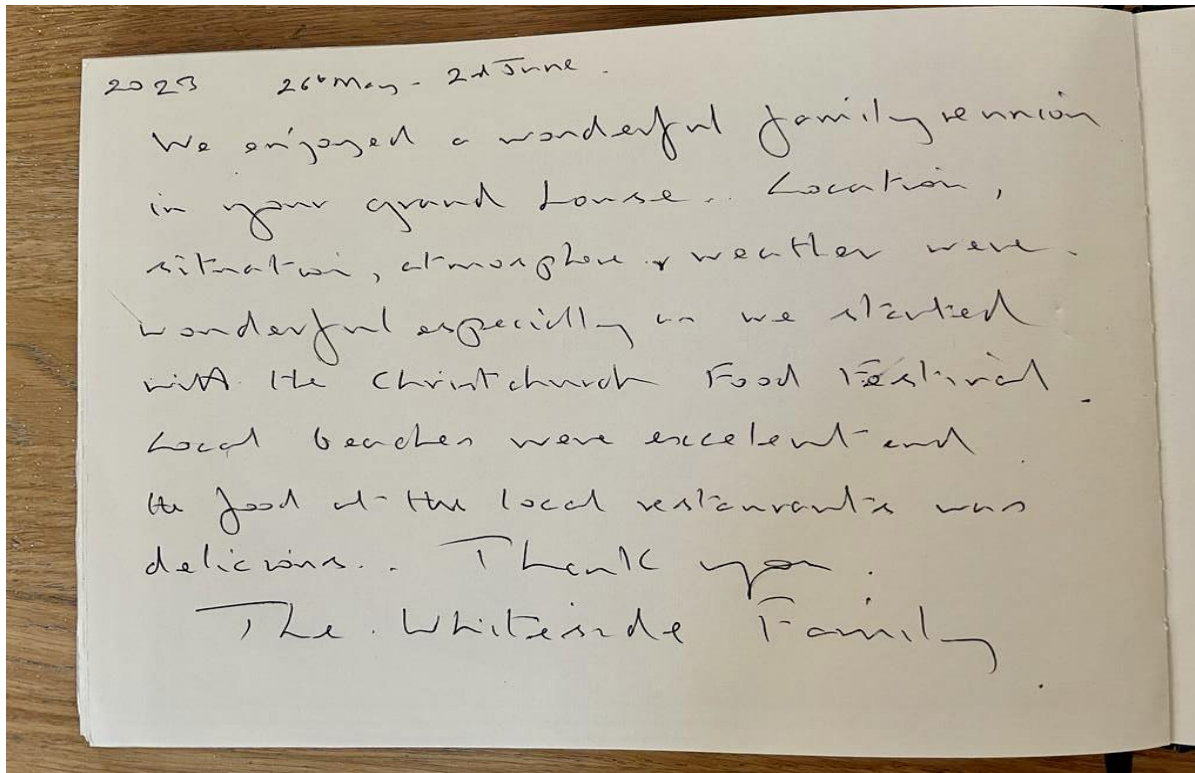 2023 26th May - 2nd June.
We enjoyed a wonderful family reunion
in your grand house. Location,
situation, atmosphere & weather were
wonderful especially as we started
with the Christchurch Food Festival.
Local beaches were excelent and
the food at the local restaurants was
delicious.. Thank you.
The Whiteside Family